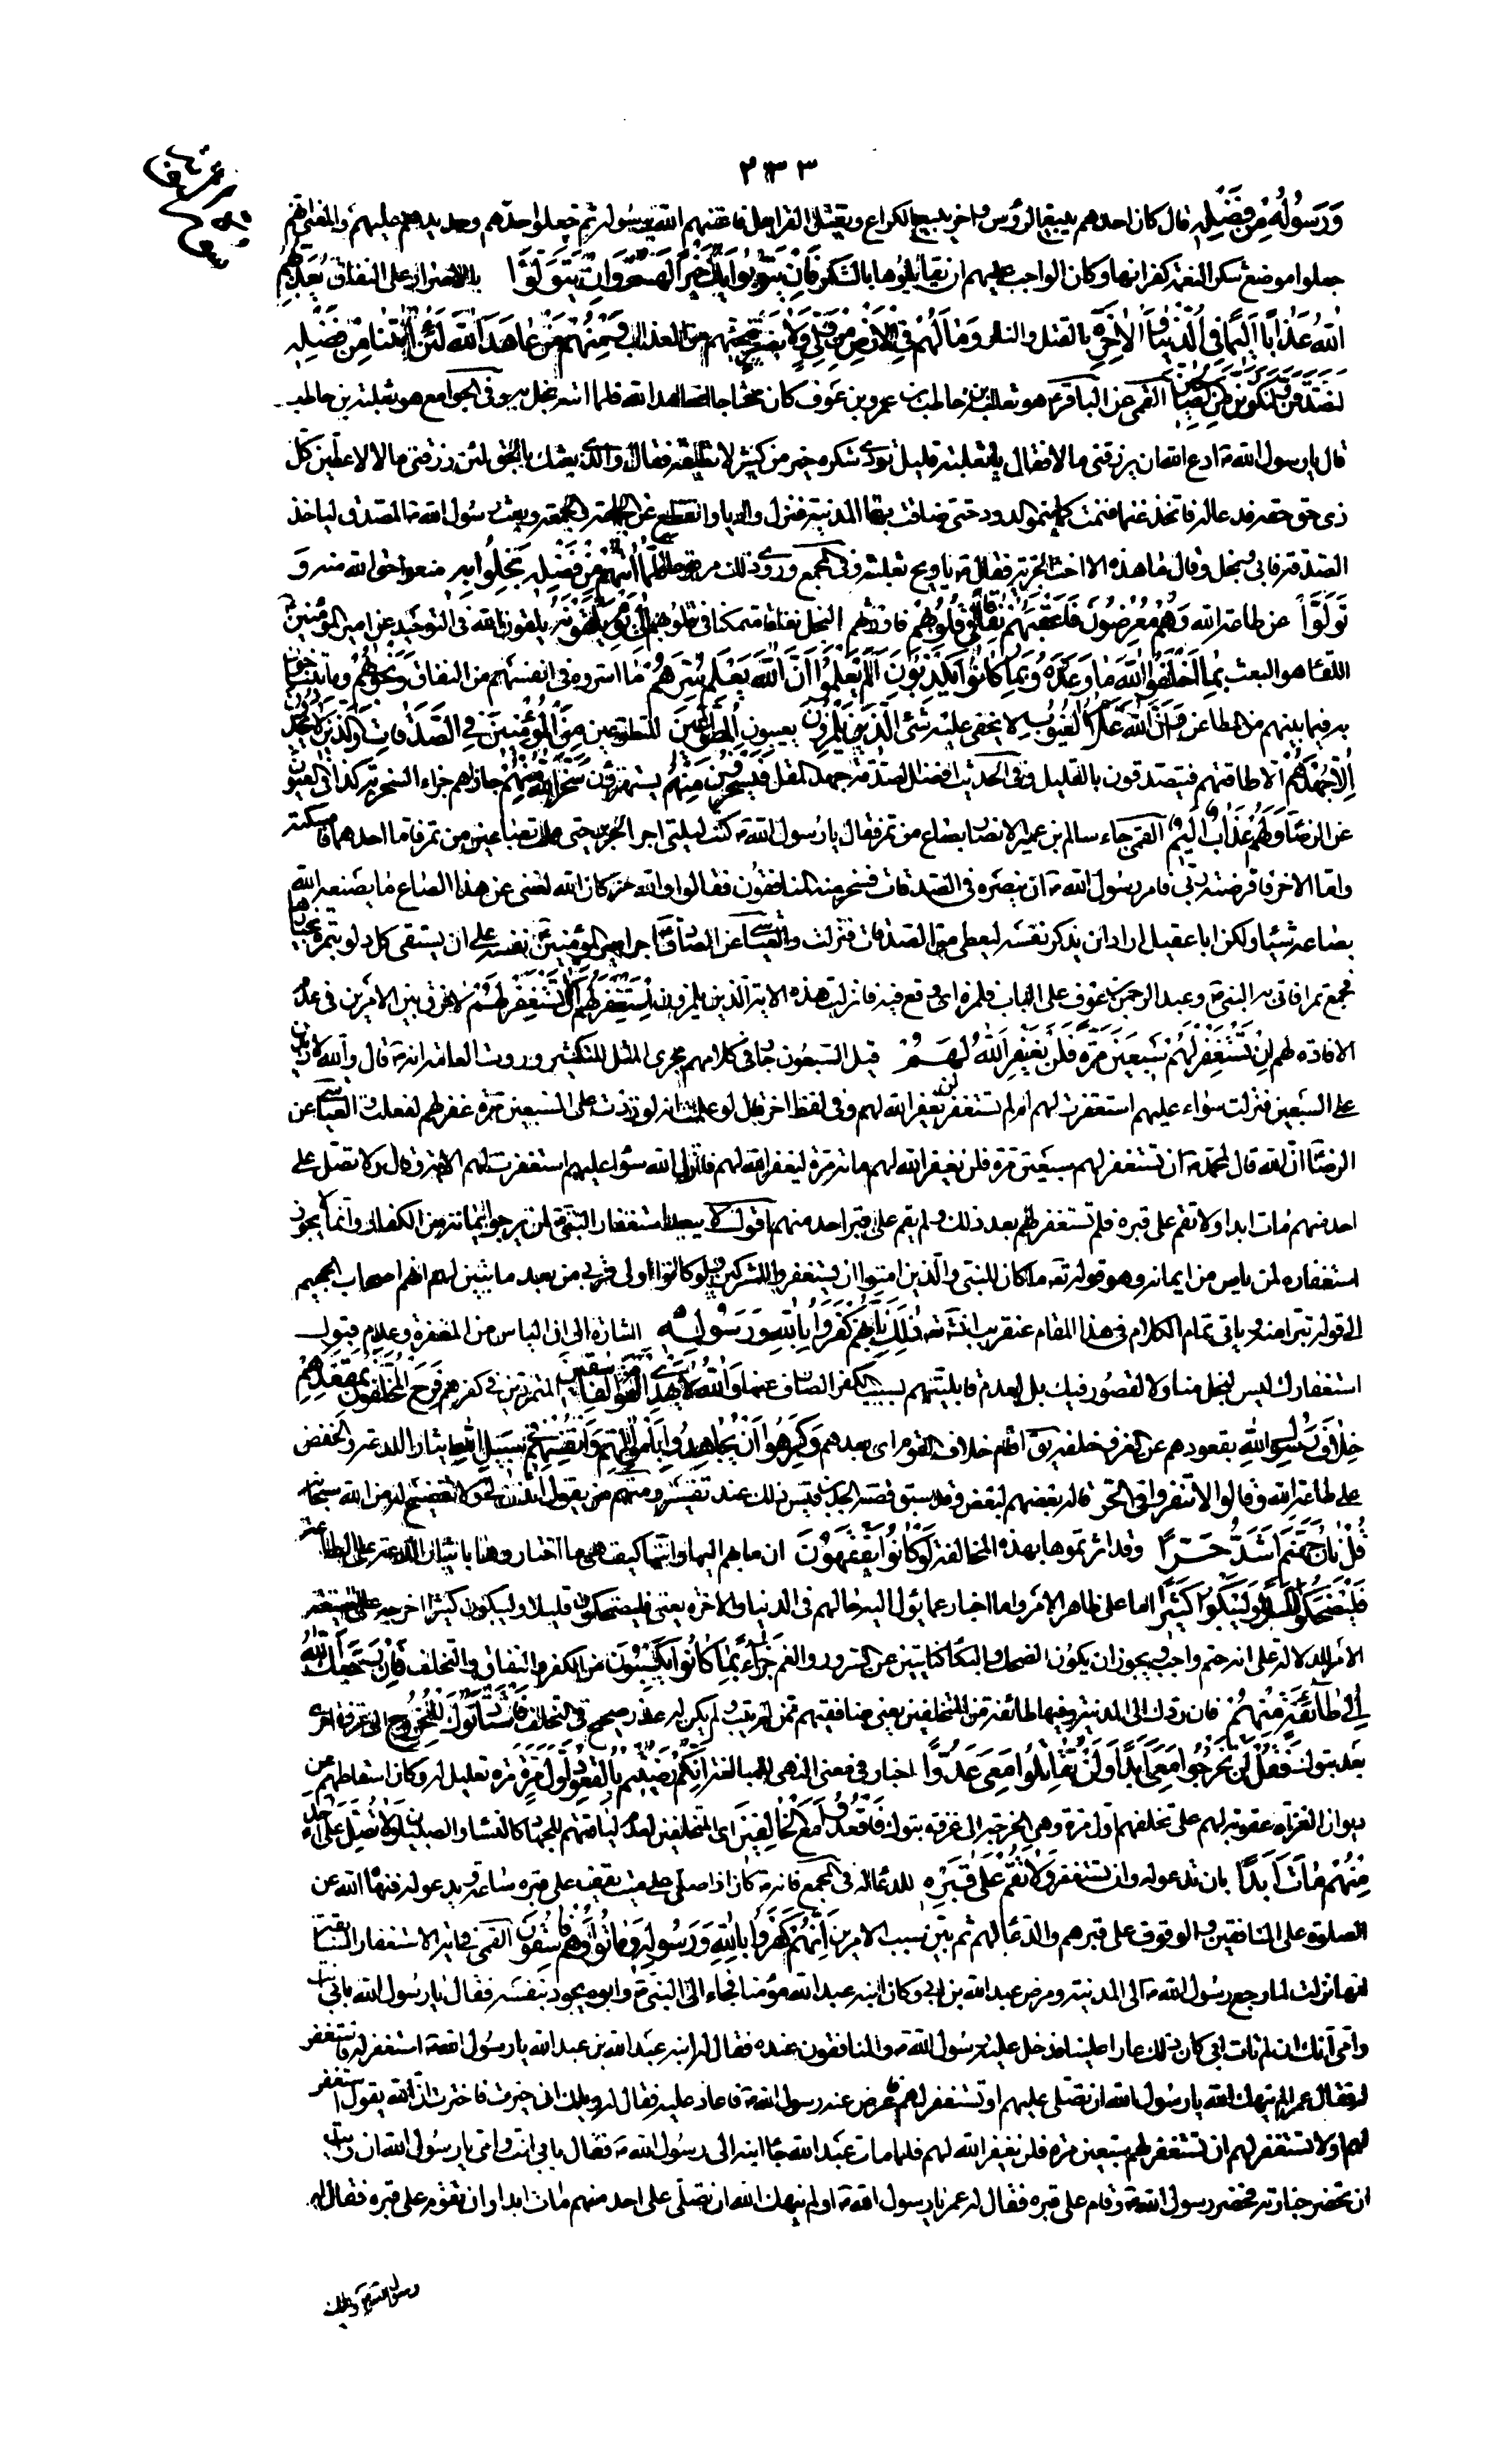 ٢٣٣
وَرَسُولُهُ مِنْ فَضْلِهِ قال كان احدهم يبيع الرؤس واخر يبيع الكراع ويفتل القرامل فاغناهم الله برسوله ثم جعلوا حدّهم وحديدهم عليهم والمعنى انّهم
جعلوا موضع شكر النعمة كفرانها وكان الواجب عليهم ان يقابلوها بالشكر فَاِنْ يَتُوبُوا يَكُ خَيْرًا لَهُمْ وَاِنْ يَتَوَلَّوْا بالاصرار على النفاق يُعَذِّبْهُمُ
اللّٰهُ عَذَابًا اَلِيمًا فِي الدُّنْيَا وَالْاٰخِرَةِ بالقتل والنار وَمَا لَهُمْ فِي الْاَرْضِ مِنْ وَلِيٍّ وَلَا نَصِيرٍ ينجيهم من العذاب وَمِنْهُمْ مَنْ عَاهَدَ اللّٰهَ لَئِنْ اٰتٰنَا مِنْ فَضْلِهِ
لَنَصَّدَّقَنَّ وَلَنَكُونَنَّ مِنَ الصّٰلِحِينَ القمي عن الباقر ع هو ثعلبة بن حاطب بن عمرو بن عوف كان محتاجا فعاهد الله فلما اتاه بخل به وفي الجوامع هو ثعلبة بن حاطب
قال يا رسول الله ص ادع الله ان يرزقني مالا فقال يا ثعلبة قليل تؤدي شكره خير من كثير لا تطيقه فقال والذي بعثك بالحق لئن رزقني مالا لاعطين كل
ذي حق حقه فدعا له فاتخذ غنما فنمت كما ينمو الدود حتى ضاقت بها المدينة فنزل واديا وانقطع عن الجماعة والجمعة وبعث رسول الله ص المصدق لياخذ
الصدقة فابى وبخل وقال ما هذه الا اخت الجزية فقال ص يا ويح ثعلبة وفي المجمع وروي ذلك مرفوعا فَلَمَّا اٰتٰهُمْ مِنْ فَضْلِهِ بَخِلُوا بِهِ منعوا حق الله منه وَ
تَوَلَّوْا عن طاعة الله وَهُمْ مُعْرِضُونَ فَاَعْقَبَهُمْ نِفَاقًا فِي قُلُوبِهِمْ فاورثهم البخل نفاقا متمكنا في قلوبهم اِلٰى يَوْمِ يَلْقَوْنَهُ يلقون الله في التوحيد عن امير المؤمنين ع
اللقاء هو البعث بِمَا اَخْلَفُوا اللّٰهَ مَا وَعَدُوهُ وَبِمَا كَانُوا يَكْذِبُونَ اَلَمْ يَعْلَمُوا اَنَّ اللّٰهَ يَعْلَمُ سِرَّهُمْ ما اسروه في انفسهم من النفاق وَنَجْوٰهُمْ وما يتناجون
به فيما بينهم من المطاعن وَاَنَّ اللّٰهَ عَلَّامُ الْغُيُوبِ لا يخفى عليه شئ اَلَّذِينَ يَلْمِزُونَ يعيبون الْمُطَّوِّعِينَ المتطوعين مِنَ الْمُؤْمِنِينَ فِي الصَّدَقَاتِ وَالَّذِينَ لَا يَجِدُونَ
اِلَّا جُهْدَهُمْ الا طاقتهم فيتصدقون بالقليل وفي الحديث افضل الصدقة جهد المقل فَيَسْخَرُونَ مِنْهُمْ يستهزؤن سَخِرَ اللّٰهُ مِنْهُمْ جازاهم جزاء السخرية كذا في العيون
عن الرضا ع وَلَهُمْ عَذَابٌ اَلِيمٌ القمي جاء سالم بن عمير الانصاري بصاع من تمر فقال يا رسول الله ص كنت ليلتي اجر الجرير حتى نلت صاعين من تمر فاما احدهما فامسكته
واما الاخر فاقرضته ربي فامر رسول الله ص ان ينثره في الصدقات فسخر منه المنافقون فقالوا والله ان كان الله لغني عن هذا الصاع ما يصنع الله
بصاعه شيئا ولكن ابا عقيل اراد ان يذكر نفسه ليعطى من الصدقات فنزلت والعياشي عن الصادق ع اجر امير المؤمنين ع نفسه على ان يستقي كل دلو بتمرة بخيارها
فجمع تمرا فاتى به النبي ص وعبد الرحمن بن عوف على الباب فلمزه اي وقع فيه فانزلت هذه الاية الذين يلمزون اِسْتَغْفِرْ لَهُمْ اَوْ لَا تَسْتَغْفِرْ لَهُمْ لا فرق بين الامرين في عدم
الافادة لهم اِنْ تَسْتَغْفِرْ لَهُمْ سَبْعِينَ مَرَّةً فَلَنْ يَغْفِرَ اللّٰهُ لَهُمْ قيل السبعون جار في كلامهم مجرى المثل للتكثير وروت العامة انه ص قال والله لازيدن
على السبعين فنزلت سواء عليهم استغفرت لهم ام لم تستغفر لن يغفر الله لهم وفي لفظ اخر قال لو علمت انه لو زدت على السبعين مرة غفر لهم لفعلت والعياشي عن
الرضا ع ان الله قال لمحمد ص ان تستغفر لهم سبعين مرة فلن يغفر الله لهم فاستغفر لهم مائة مرة ليغفر الله لهم فانزل الله سواء عليهم استغفرت لهم الاية وقال ولا تصل على
احد منهم مات ابدا ولا تقم على قبره فلم يستغفر لهم بعد ذلك ولم يقم على قبر احد منهم اقول لا يبعد استغفار النبي ص لمن يرجو ايمانه من الكفار وانما لا يجوز
استغفاره لمن يأس من ايمانه وهو قوله تع ما كان للنبي والذين امنوا ان يستغفروا للمشركين ولو كانوا اولى قربى من بعد ما تبين لهم انهم اصحاب الجحيم
الى قوله تبرا منه وياتي تمام الكلام في هذا المقام عنقريب انشاء الله ذٰلِكَ بِاَنَّهُمْ كَفَرُوا بِاللّٰهِ وَرَسُولِهِ اشارة الى ان الياس من المغفرة وعدم قبول
استغفارك ليس لبخل منا ولا لقصور فيك بل لعدم قابليتهم بسبب الكفر الصارف عنها وَاللّٰهُ لَا يَهْدِي الْقَوْمَ الْفَاسِقِينَ المتمردين في كفرهم فَرِحَ الْمُخَلَّفُونَ بِمَقْعَدِهِمْ
خِلَافَ رَسُولِ اللّٰهِ بقعودهم عن الغزو خلفه يق اقام خلاف القوم اي بعدهم وَكَرِهُوا اَنْ يُجَاهِدُوا بِاَمْوَالِهِمْ وَاَنْفُسِهِمْ فِي سَبِيلِ اللّٰهِ ايثارا للدعة والخفض
على طاعة الله وقالوا لا تنفروا في الحر قاله بعضهم لبعض وقد سبق قصة الجد بن قيس في ذلك عند تفسير ومنهم من يقول ائذن لي ولا تفتني من الله سبحانه
قُلْ نَارُ جَهَنَّمَ اَشَدُّ حَرًّا وقد اثرتموها بهذه المخالفة لَوْ كَانُوا يَفْقَهُونَ ان مابهم اليها وانها كيف هي ما اختاروها بايثار الدعة على الطاعة
فَلْيَضْحَكُوا قَلِيلًا وَلْيَبْكُوا كَثِيرًا اما على ظاهر الامر واما اخبار عما يؤل اليه حالهم في الدنيا والاخرة يعني فيضحكون قليلا وليبكون كثيرا اخرجه على صيغة
الامر للدلالة على انه حتم واجب ويجوز ان يكون الضحك والبكاء كنايتين عن السرور والغم جَزَاءً بِمَا كَانُوا يَكْسِبُونَ من الكفر والنفاق والتخلف فَاِنْ رَجَعَكَ اللّٰهُ
اِلٰى طَائِفَةٍ مِنْهُمْ فان ردك الى المدينة وفيها طائفة من المتخلفين يعني منافقيهم ممن لم يتب ولم يكن له عذر صحيح في التخلف فَاسْتَأْذَنُوكَ لِلْخُرُوجِ الى غزوة اخرى
بعد تبوك فَقُلْ لَنْ تَخْرُجُوا مَعِيَ اَبَدًا وَلَنْ تُقَاتِلُوا مَعِيَ عَدُوًّا اخبار في معنى النهي للمبالغة اِنَّكُمْ رَضِيتُمْ بِالْقُعُودِ اَوَّلَ مَرَّةٍ تعليل له وكان اسقاطهم من
ديوان الغزاة عقوبة لهم على تخلفهم اول مرة وهي الخرجة الى غزوة تبوك فَاقْعُدُوا مَعَ الْخَالِفِينَ اي المتخلفين لعدم لياقتهم للجهاد كالنساء والصبيان وَلَا تُصَلِّ عَلٰى اَحَدٍ
مِنْهُمْ مَاتَ اَبَدًا بان تدعو له وان تستغفر وَلَا تَقُمْ عَلٰى قَبْرِهِ للدعاء له في المجمع فانه ص كان اذا صلى على ميت يقف على قبره ساعة ويدعو له فنهاه الله عن
الصلوة على المنافقين والوقوف على قبرهم والدعاء لهم ثم بين سبب الامرين اِنَّهُمْ كَفَرُوا بِاللّٰهِ وَرَسُولِهِ وَمَاتُوا وَهُمْ فَاسِقُونَ القمي في اية الاستغفار السابقة
انها نزلت لما رجع رسول الله ص الى المدينة ومرض عبد الله بن ابي وكان ابنه عبد الله مؤمنا فجاء الى النبي ص وابوه يجود بنفسه فقال يا رسول الله بابي انت
وامي انك ان لم تات ابي كان ذلك عارا علينا فدخل عليه رسول الله ص والمنافقون عنده فقال له ابنه عبد الله بن عبد الله يا رسول الله ص استغفر له فاستغفر
له فقال عمر الم ينهك الله يا رسول الله ان تصلى عليهم او تستغفر لهم فاعرض عنه رسول الله ص فاعاد عليه فقال له ويلك اني خيرت فاخترت ان الله يقول استغفر
لهم او لا تستغفر لهم ان تستغفر لهم سبعين مرة فلن يغفر الله لهم فلما مات عبد الله جاء ابنه الى رسول الله ص فقال بابي انت وامي يا رسول الله ان رايت
ان تحضر جنازته فحضر رسول الله ص وقام على قبره فقال له عمر يا رسول الله ص اولم ينهك الله ان تصلى على احد منهم مات ابدا وان تقوم على قبره فقال له
رسول الله ص ويلك